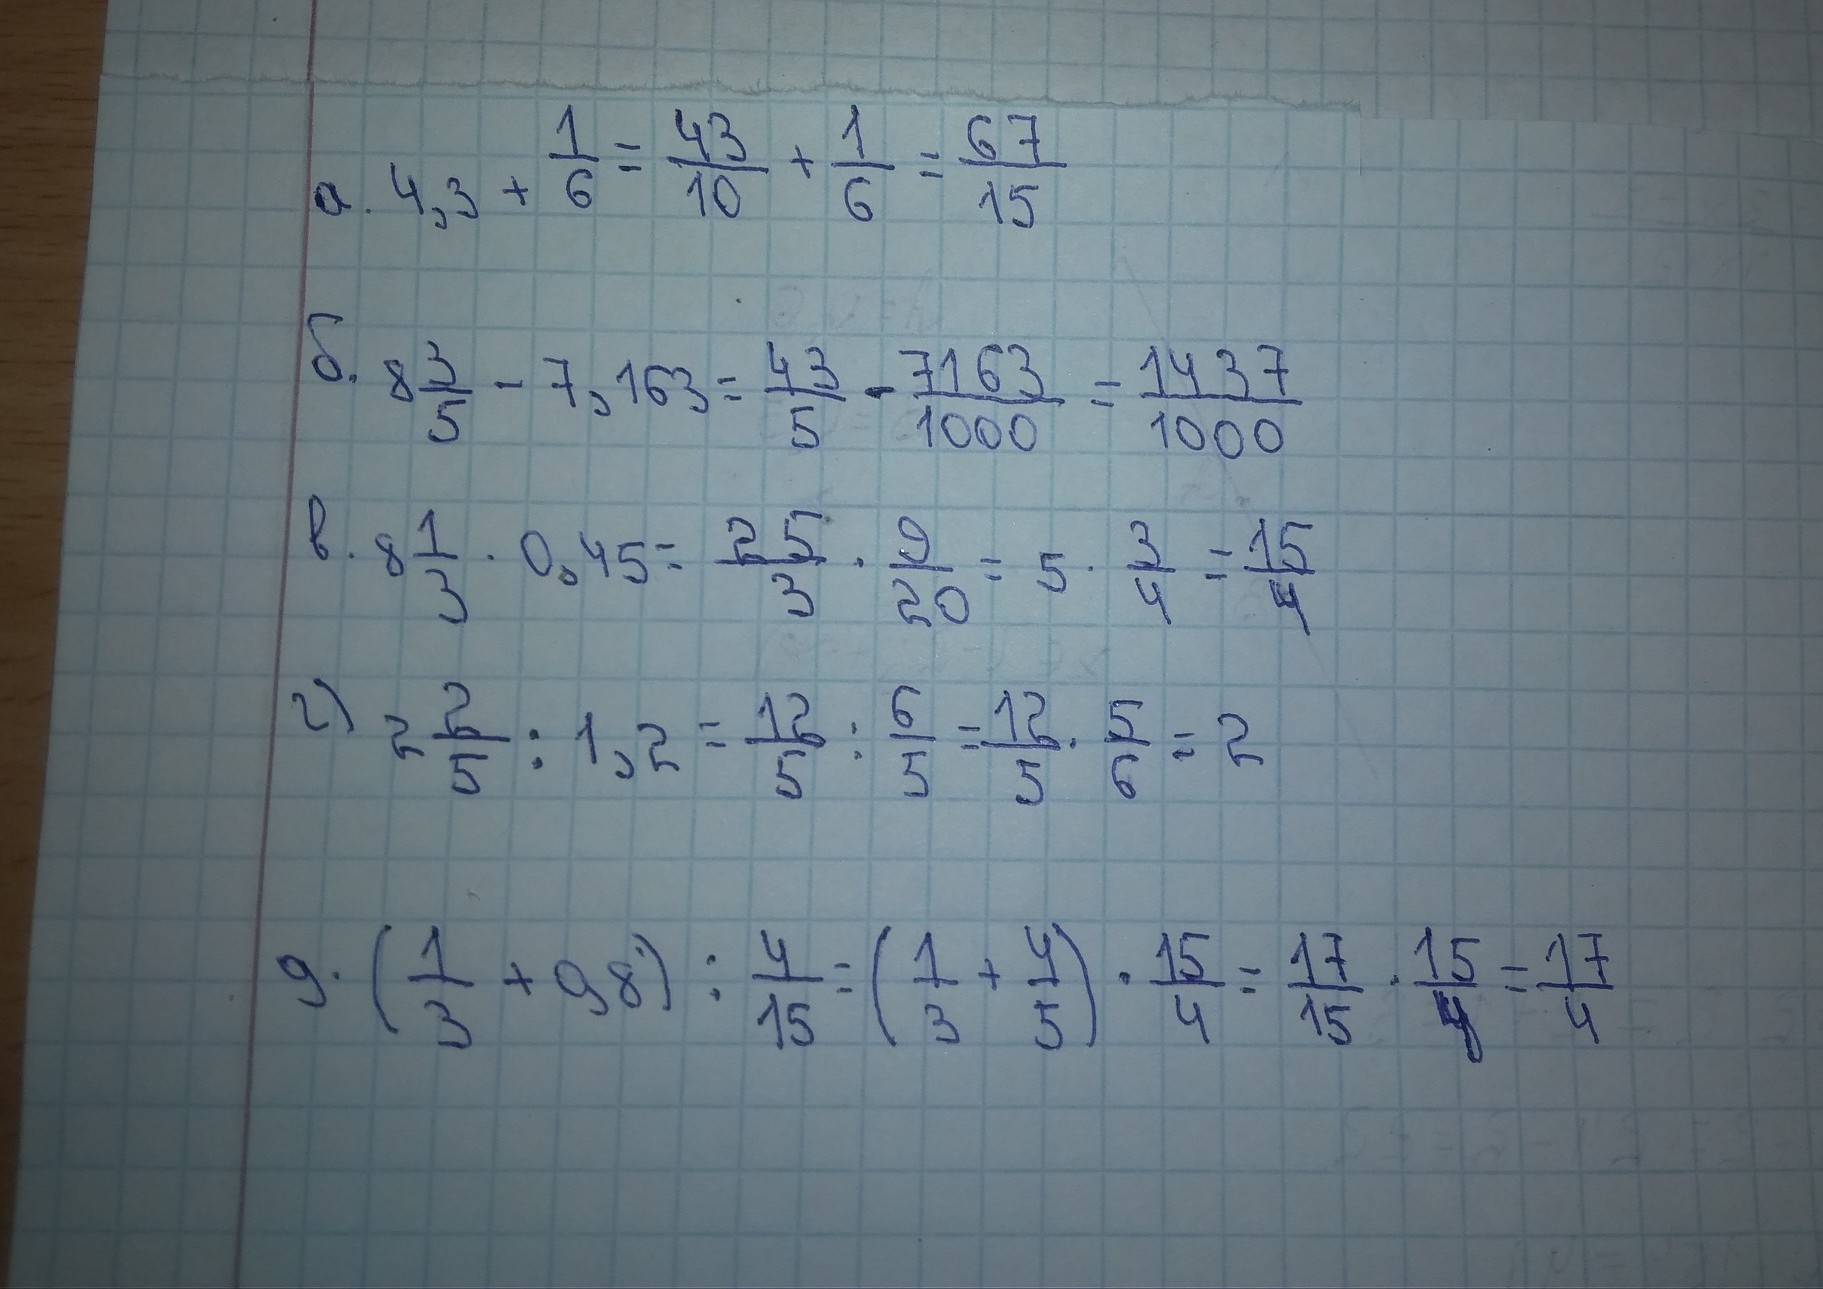 а. 4,3 + 1/6 = 43/10 + 1/6 = 67/15
б. 8 3/5 - 7,163 = 43/5 - 7163/1000 = 1437/1000
в. 8 1/3 · 0,45 = 25/3 · 9/20 = 5 · 3/4 = 15/4
г) 2 2/5 : 1,2 = 12/5 : 6/5 = 12/5 · 5/6 = 2
д. (1/3 + 0,8) : 4/15 = (1/3 + 4/5) · 15/4 = 17/15 · 15/4 = 17/4